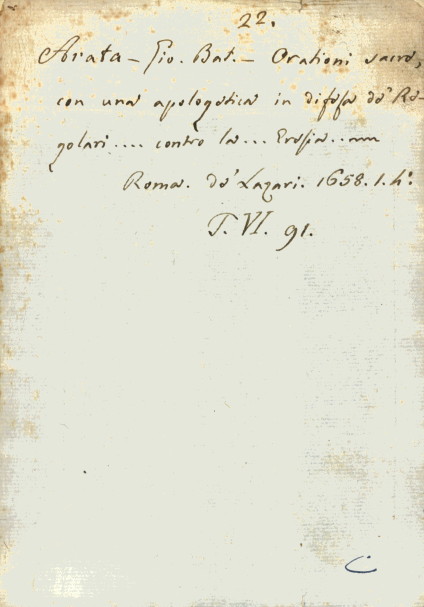 22.
Arata - Gio. Bat. - Orationi sacre,
con una apologetica in difesa de' Re-
golari.... contro la... Eresia...
Roma. de' Lazari. 1658. 1. 4°.
T. VI. 91.
C